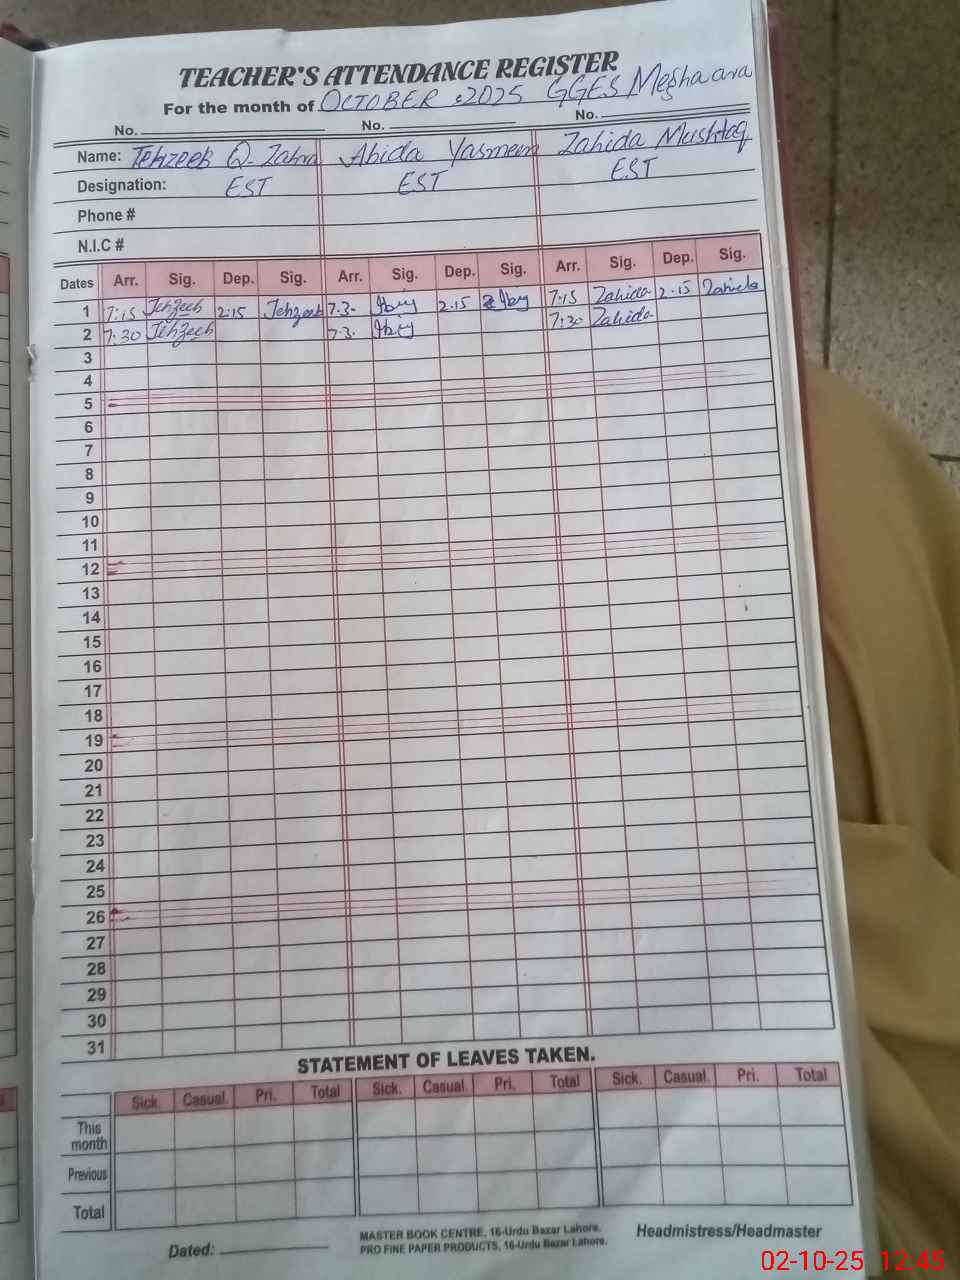 TEACHER'S ATTENDANCE REGISTER
For the month of OCTOBER 2025 GGES Meghaara
No. No. No.
Name: Tehzeeb Q. Zahra Abida Yasmeen Zahida Mushtaq
Designation: EST EST EST
Phone #
N.I.C #
Dates Arr. Sig. Dep. Sig. Arr. Sig. Dep. Sig. Arr. Sig. Dep. Sig.
1 7:15 Tehzeeb 2:15 Tehzeeb 7.3- 2.15 7:15 Zahida 2.15 Zahida
2 7:30 Tehzeeb 7.3. 7:30 Zahida
3
4
5
6
7
8
9
10
11
12
13
14
15
16
17
18
19
20
21
22
23
24
25
26
27
28
29
30
31
STATEMENT OF LEAVES TAKEN.
Sick. Casual. Pri. Total Sick. Casual. Pri. Total Sick. Casual. Pri. Total
This month
Previous
Total
Dated:
MASTER BOOK CENTRE, 16-Urdu Bazar Lahore.
PRO FINE PAPER PRODUCTS, 16-Urdu Bazar Lahore.
Headmistress/Headmaster
02-10-25 12:45